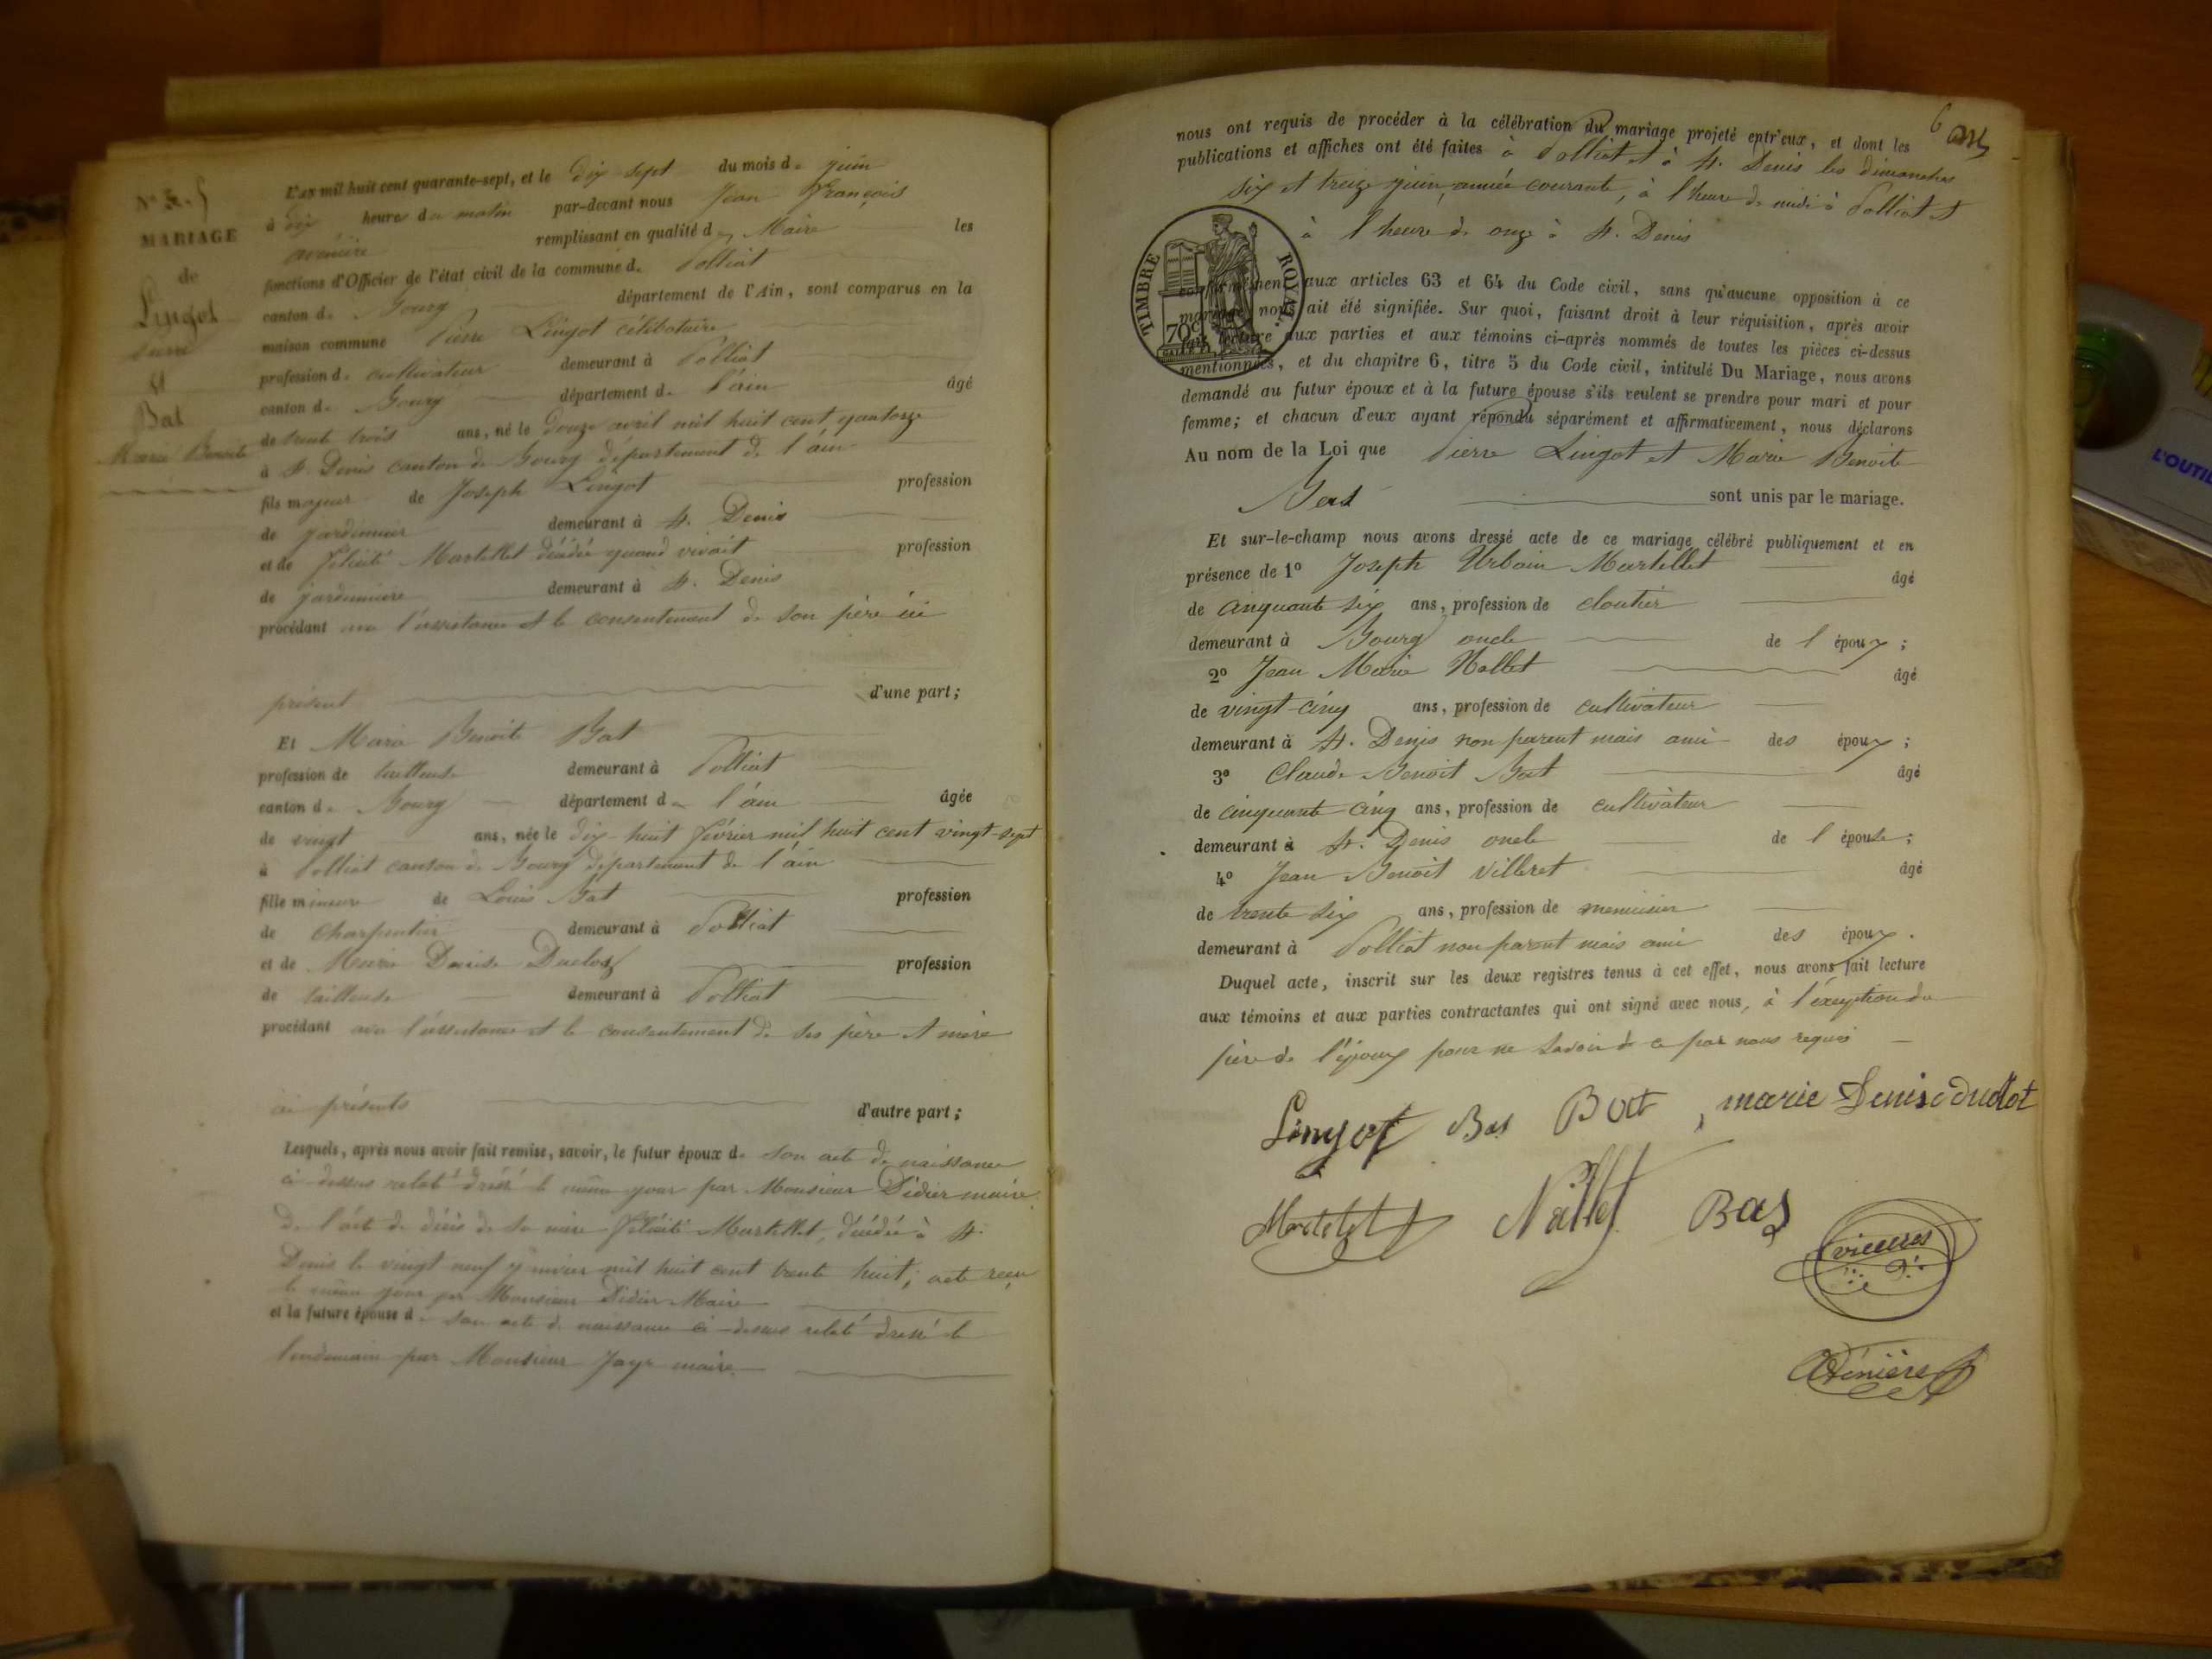 N° 5
MARIAGE
de
Lingot
Pierre
et
Bat
Marie Benoite
L'an mil huit cent quarante-sept, et le dix sept du mois de juin
à dix heures du matin par-devant nous Jean François
remplissant en qualité de Maire les
fonctions d'Officier de l'état civil de la commune de Polliat
canton de Bourg département de l'Ain, sont comparus en la
maison commune Pierre Lingot célibataire
profession de cultivateur demeurant à Polliat
canton de Bourg département de l'ain âgé
de trente trois ans, né le douze avril mil huit cent quatorze
à St. Denis canton de Bourg département de l'ain
fils majeur de Joseph Lingot profession
de jardinier demeurant à St. Denis
et de Félicité Martellet décédée quand vivait profession
de jardinière demeurant à St. Denis
procédant avec l'assistance et le consentement de son père ici
présent d'une part;
Et Marie Benoite Bat
profession de tailleuse demeurant à Polliat
canton de Bourg département de l'ain âgée
de vingt ans, née le dix huit février mil huit cent vingt sept
à Polliat canton de Bourg département de l'ain
fille mineure de Louis Bat profession
de charpentier demeurant à Polliat
et de Marie Denise Duclot profession
de tailleuse demeurant à Polliat
procédant avec l'assistance et le consentement de ses père et mère
ici présents d'autre part;
Lesquels, après nous avoir fait remise, savoir, le futur époux de son acte de naissance
ci-dessus relaté dressé le même jour par Monsieur Didier maire
de l'acte de décès de sa mère Félicité Martellet, décédée à St.
Denis le vingt neuf janvier mil huit cent trente huit, acte reçu
le même jour par Monsieur Didier Maire
et la future épouse de son acte de naissance ci-dessus relaté dressé le
lendemain par Monsieur Jayr maire
6
nous ont requis de procéder à la célébration du mariage projeté entr'eux, et dont les
publications et affiches ont été faites à Polliat et à St. Denis les dimanches
six et treize juin, année courante, à l'heure de midi à Polliat et
à l'heure de onze à St. Denis
TIMBRE ROYAL
70c
conformément aux articles 63 et 64 du Code civil, sans qu'aucune opposition à ce
mariage nous ait été signifiée. Sur quoi, faisant droit à leur réquisition, après avoir
fait lecture aux parties et aux témoins ci-après nommés de toutes les pièces ci-dessus
mentionnées, et du chapitre 6, titre 5 du Code civil, intitulé Du Mariage, nous avons
demandé au futur époux et à la future épouse s'ils veulent se prendre pour mari et pour
femme; et chacun d'eux ayant répondu séparément et affirmativement, nous déclarons
Au nom de la Loi que Pierre Lingot et Marie Benoite
Bat sont unis par le mariage.
Et sur-le-champ nous avons dressé acte de ce mariage célébré publiquement et en
présence de 1° Joseph Urbain Martellet âgé
de cinquante six ans, profession de cloutier
demeurant à Bourg oncle de l'époux;
2° Jean Marie Nallet âgé
de vingt-cinq ans, profession de cultivateur
demeurant à St. Denis non parent mais ami des époux;
3° Claude Benoit Bat âgé
de cinquante cinq ans, profession de cultivateur
demeurant à St. Denis oncle de l'épouse;
4° Jean Benoit Villeret âgé
de trente six ans, profession de menuisier
demeurant à Polliat non parent mais ami des époux.
Duquel acte, inscrit sur les deux registres tenus à cet effet, nous avons fait lecture
aux témoins et aux parties contractantes qui ont signé avec nous, à l'exception du
père de l'époux pour ne savoir de ce par nous requis
Lingot Bat Bat, marie Denise duclot
Martelet Nallet Bas
L'OUTIL